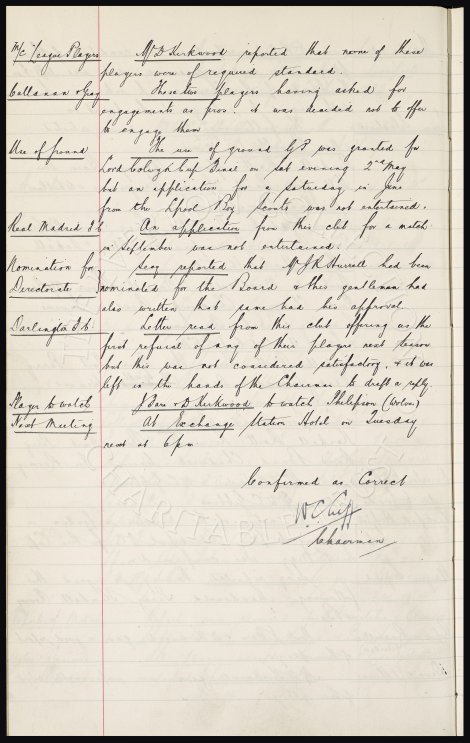 M/c League Players Mr D Kirkwood reported that none of these
players were of required standard.
Callanan & Gray These two players having asked for
engagements as pros. it was decided not to offer
to engage them
Use of ground The use of ground GP was granted for
Lord Cup Final on Sat evening 2nd May
but an application for a Saturday in June
from the Lpool Boy Scouts was not entertained.
Real Madrid F.C An application from this club for a match
in September was not entertained.
Nomination for Secy reported that Mr J R had been
Directorate nominated for the Board & this gentleman had
also written that same had his approval.
Darlington F.C. Letter read from this club offering us the
first refusal of any of their players next season
but this was not considered satisfactory, & it was
left in the hands of the Chairman to draft a reply.
Player to watch J Bare & D Kirkwood to watch Phillipson (Wolves)
Next Meeting At Exchange Station Hotel on Tuesday
next at 6 pm.
Confirmed as Correct
W.C. Cuff
Chairman
CHARITABLE